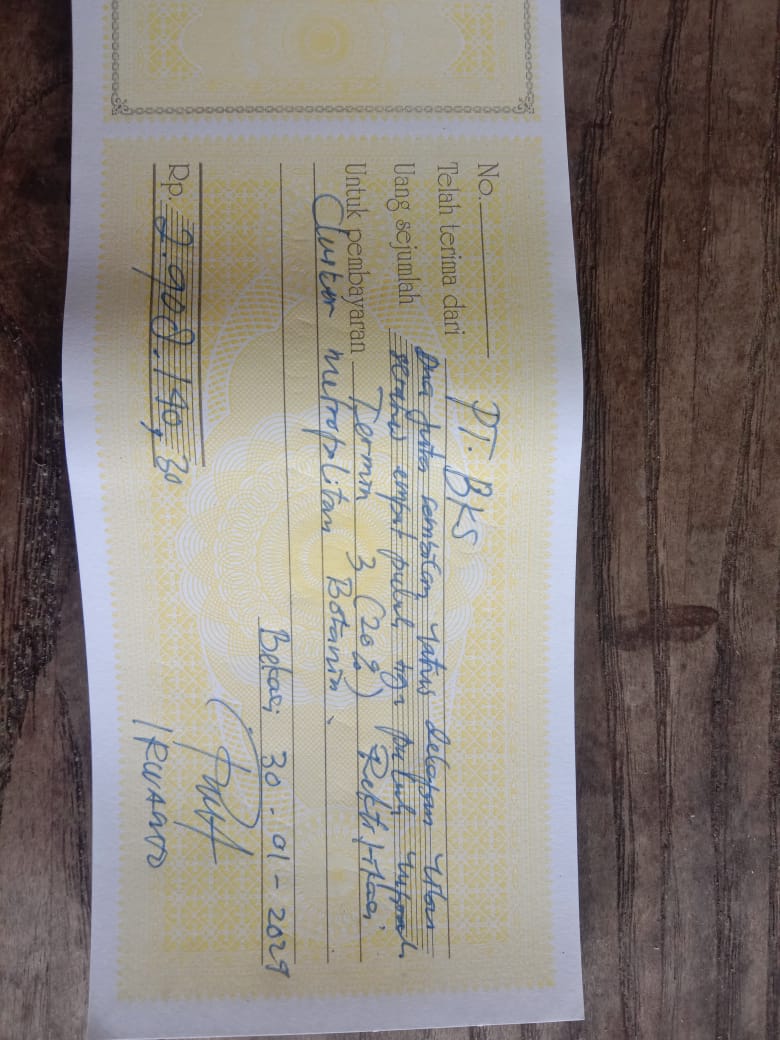 No.
Telah terima dari PT. BKS
Uang sejumlah Dua juta sembilan ratus delapan ribu
seratus empat puluh tiga puluh rupiah
Untuk pembayaran Termin 3 (20%)
Cluster metropolitan Botania.
Bekasi 30-01-2029
Rp. 2.908.140,30
IRWANTO